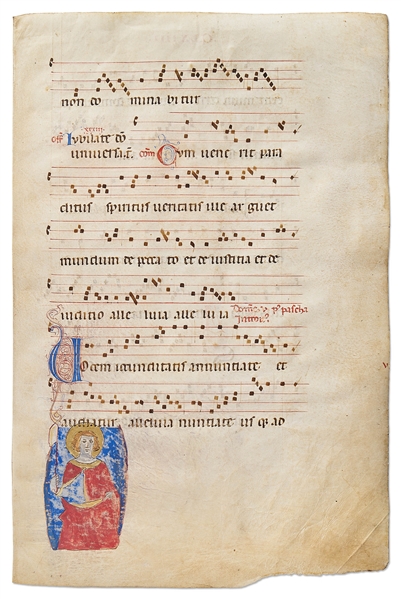 non do mina bi tur
off xxiiii Iubilate do
universa t. com Cum vene rit para
clitus spiritus veritatis ille ar guet
mundum de pecca to et de iustitia et de
iuditio alle luia alle lu ia Dom. v. p' pascha
Introi.
Vocem iocunditatis annunciate et
audiatur alleluia nunciate us q. ad
v